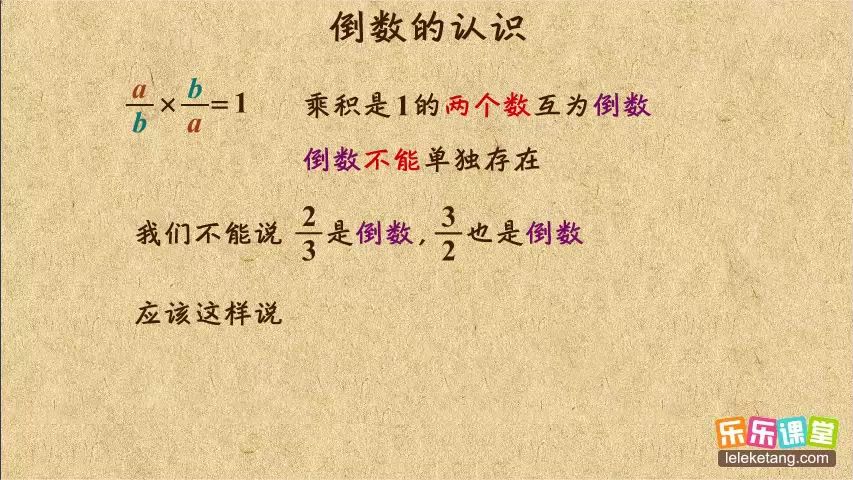 倒数的认识
a/b × b/a = 1 乘积是1的两个数互为倒数
倒数不能单独存在
我们不能说 2/3 是倒数, 3/2 也是倒数
应该这样说
乐乐课堂
leleketang.com